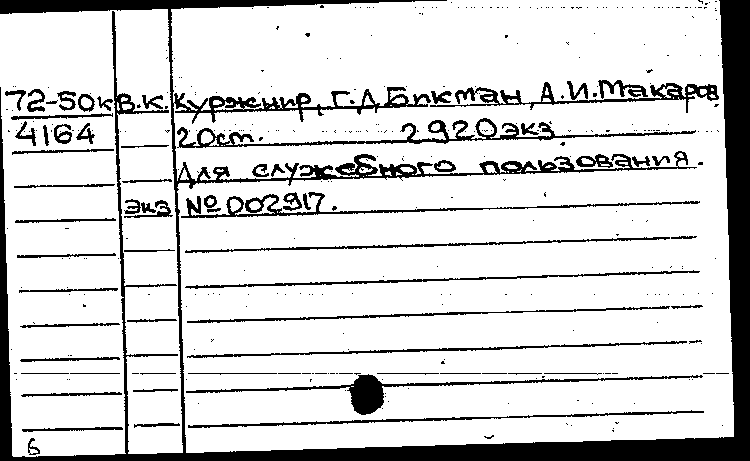 72-50к В.К. Куржнир, Г.Д Бикман, А.И.Макаров
4164 20см. 2920экз
Для служебного пользования.
экз №002917.
6